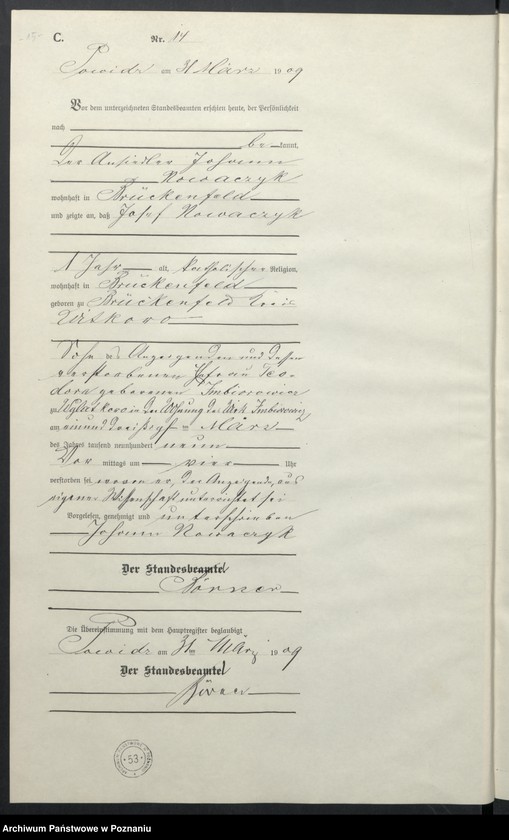 C. Nr. 14
Powidz am 31 März 1909
Vor dem unterzeichneten Standesbeamten erschien heute, der Persönlichkeit
nach
be kannt,
Der Ansiedler Johann
Nowaczyk
wohnhaft in Brückenfeld
und zeigte an, daß Josef Nowaczyk
1 Jahr alt, katholischer Religion,
wohnhaft in Brückenfeld
geboren zu Brückenfeld Kreis
Witkowo
Sohn des Anzeigenden und dessen
verstorbenen Ehefrau Teo-
dora geborenen
zu in der Wohnung des
am ein und dreißigsten März
des Jahres tausend neunhundert neun
Vor mittags um vier Uhr
verstorben sei, wovon er, der Anzeigende, aus
eigener Wissenschaft unterrichtet sei
Vorgelesen, genehmigt und unterschrieben
Johann Nowaczyk
Der Standesbeamte
Börner
Die Übereinstimmung mit dem Hauptregister beglaubigt
Powidz am 31ten März 1909
Der Standesbeamte
53
Archiwum Państwowe w Poznaniu